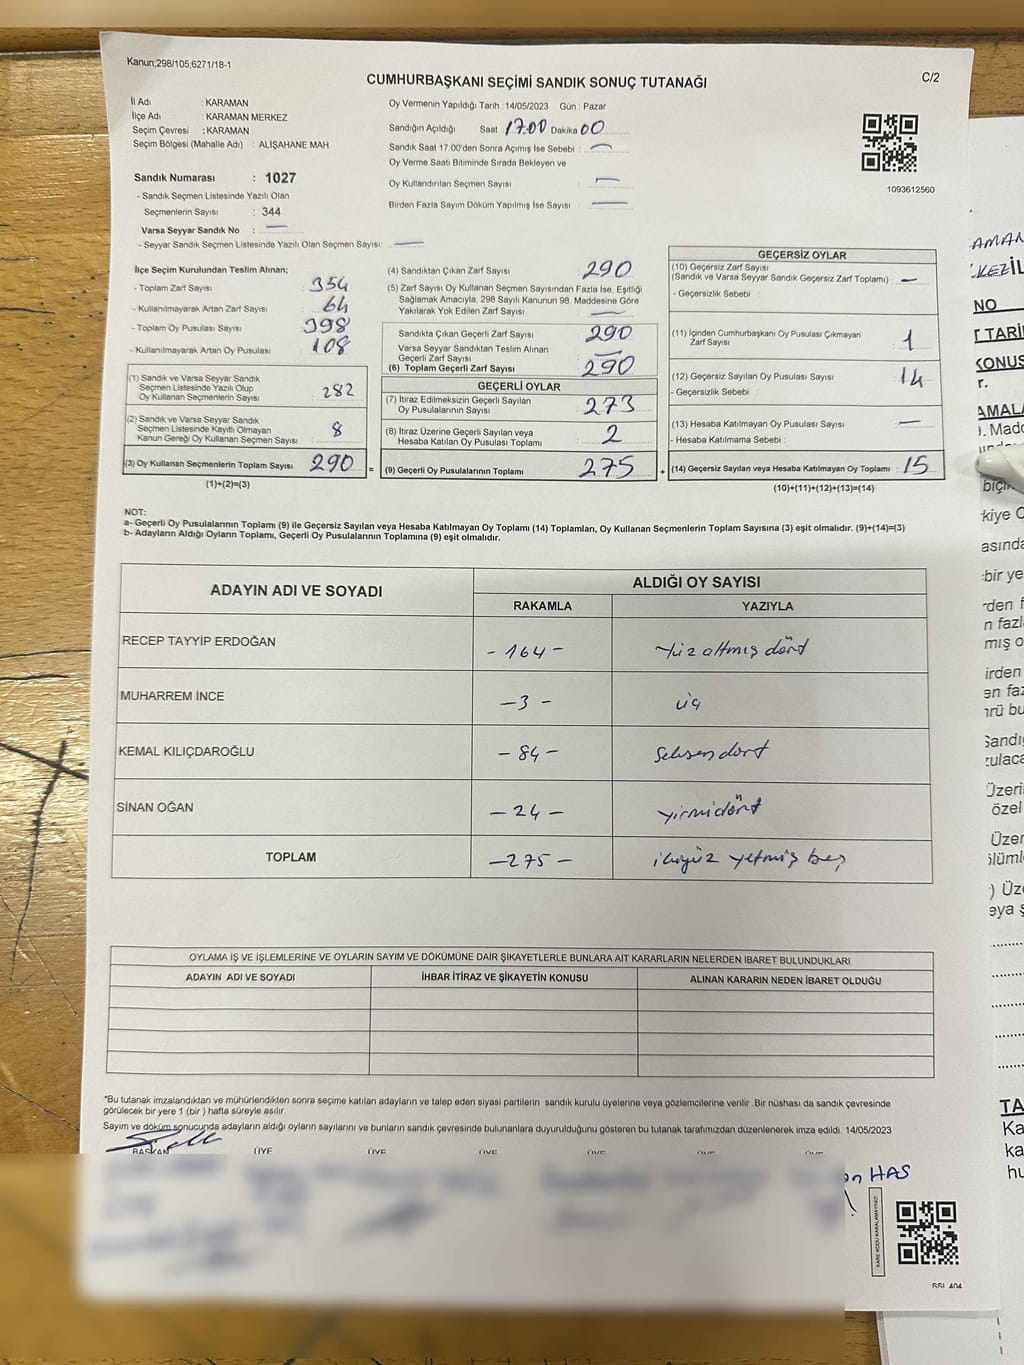 Kanun;298/105;6271/18-1
CUMHURBAŞKANI SEÇİMİ SANDIK SONUÇ TUTANAĞI
C/2
İl Adı : KARAMAN
İlçe Adı : KARAMAN MERKEZ
Seçim Çevresi : KARAMAN
Seçim Bölgesi (Mahalle Adı) : ALİŞAHANE MAH.
Sandık Numarası : 1027
- Sandık Seçmen Listesinde Yazılı Olan
Seçmenlerin Sayısı : 344
Varsa Seyyar Sandık No : —
- Seyyar Sandık Seçmen Listesinde Yazılı Olan Seçmen Sayısı: —
Oy Vermenin Yapıldığı Tarih : 14/05/2023 Gün : Pazar
Sandığın Açıldığı Saat : 17.00 Dakika 00
Sandık Saat 17:00'den Sonra Açımış İse Sebebi : —
Oy Verme Saati Bitiminde Sırada Bekleyen ve
Oy Kullandırılan Seçmen Sayısı : —
Birden Fazla Sayım Döküm Yapılmış İse Sayısı : —
1093612560
İlçe Seçim Kurulundan Teslim Alınan;
- Toplam Zarf Sayısı : 354
- Kullanılmayarak Artan Zarf Sayısı : 64
- Toplam Oy Pusulası Sayısı : 398
- Kullanılmayarak Artan Oy Pusulası : 108
(1) Sandık ve Varsa Seyyar Sandık
Seçmen Listesinde Yazılı Olup
Oy Kullanan Seçmenlerin Sayısı : 282
(2) Sandık ve Varsa Seyyar Sandık
Seçmen Listesinde Kayıtlı Olmayan
Kanun Gereği Oy Kullanan Seçmen Sayısı : 8
(3) Oy Kullanan Seçmenlerin Toplam Sayısı : 290
(1)+(2)=(3)
(4) Sandıktan Çıkan Zarf Sayısı : 290
(5) Zarf Sayısı Oy Kullanan Seçmen Sayısından Fazla İse, Eşitliği
Sağlamak Amacıyla, 298 Sayılı Kanunun 98. Maddesine Göre
Yakılarak Yok Edilen Zarf Sayısı : —
Sandıkta Çıkan Geçerli Zarf Sayısı : 290
Varsa Seyyar Sandıktan Teslim Alınan
Geçerli Zarf Sayısı : —
(6) Toplam Geçerli Zarf Sayısı : 290
GEÇERLİ OYLAR
(7) İtiraz Edilmeksizin Geçerli Sayılan
Oy Pusulalarının Sayısı : 273
(8) İtiraz Üzerine Geçerli Sayılan veya
Hesaba Katılan Oy Pusulası Toplamı : 2
=
(9) Geçerli Oy Pusulalarının Toplamı : 275
+
GEÇERSİZ OYLAR
(10) Geçersiz Zarf Sayısı
(Sandık ve Varsa Seyyar Sandık Geçersiz Zarf Toplamı) : —
- Geçersizlik Sebebi :
(11) İçinden Cumhurbaşkanı Oy Pusulası Çıkmayan
Zarf Sayısı : 1
(12) Geçersiz Sayılan Oy Pusulası Sayısı : 14
- Geçersizlik Sebebi :
(13) Hesaba Katılmayan Oy Pusulası Sayısı : —
- Hesaba Katılmama Sebebi :
(14) Geçersiz Sayılan veya Hesaba Katılmayan Oy Toplamı : 15
(10)+(11)+(12)+(13)=(14)
NOT:
a- Geçerli Oy Pusulalarının Toplamı (9) ile Geçersiz Sayılan veya Hesaba Katılmayan Oy Toplamı (14) Toplamları, Oy Kullanan Seçmenlerin Toplam Sayısına (3) eşit olmalıdır. (9)+(14)=(3)
b- Adayların Aldığı Oyların Toplamı, Geçerli Oy Pusulalarının Toplamına (9) eşit olmalıdır.
ADAYIN ADI VE SOYADI
ALDIĞI OY SAYISI
RAKAMLA YAZIYLA
RECEP TAYYİP ERDOĞAN - 164 - Yüz altmış dört
MUHARREM İNCE - 3 - üç
KEMAL KILIÇDAROĞLU - 84 - Seksen dört
SİNAN OĞAN - 24 - yirmi dört
TOPLAM - 275 - ikiyüz yetmiş beş
OYLAMA İŞ VE İŞLEMLERİNE VE OYLARIN SAYIM VE DÖKÜMÜNE DAİR ŞİKAYETLERLE BUNLARA AİT KARARLARIN NELERDEN İBARET BULUNDUKLARI
ADAYIN ADI VE SOYADI İHBAR İTİRAZ VE ŞİKAYETİN KONUSU ALINAN KARARIN NEDEN İBARET OLDUĞU
*Bu tutanak imzalandıktan ve mühürlendikten sonra seçime katılan adayların ve talep eden siyasi partilerin sandık kurulu üyelerine veya gözlemcilerine verilir .Bir nüshası da sandık çevresinde
görülecek bir yere 1 (bir ) hafta süreyle asılır.
Sayım ve döküm sonucunda adayların aldığı oyların sayılarını ve bunların sandık çevresinde bulunanlara duyurulduğunu gösteren bu tutanak tarafımızdan düzenlenerek imza edildi. 14/05/2023
BAŞKAN ÜYE ÜYE ÜYE ÜYE ÜYE
HAS
KARE KODU KARALAMAYINIZ!